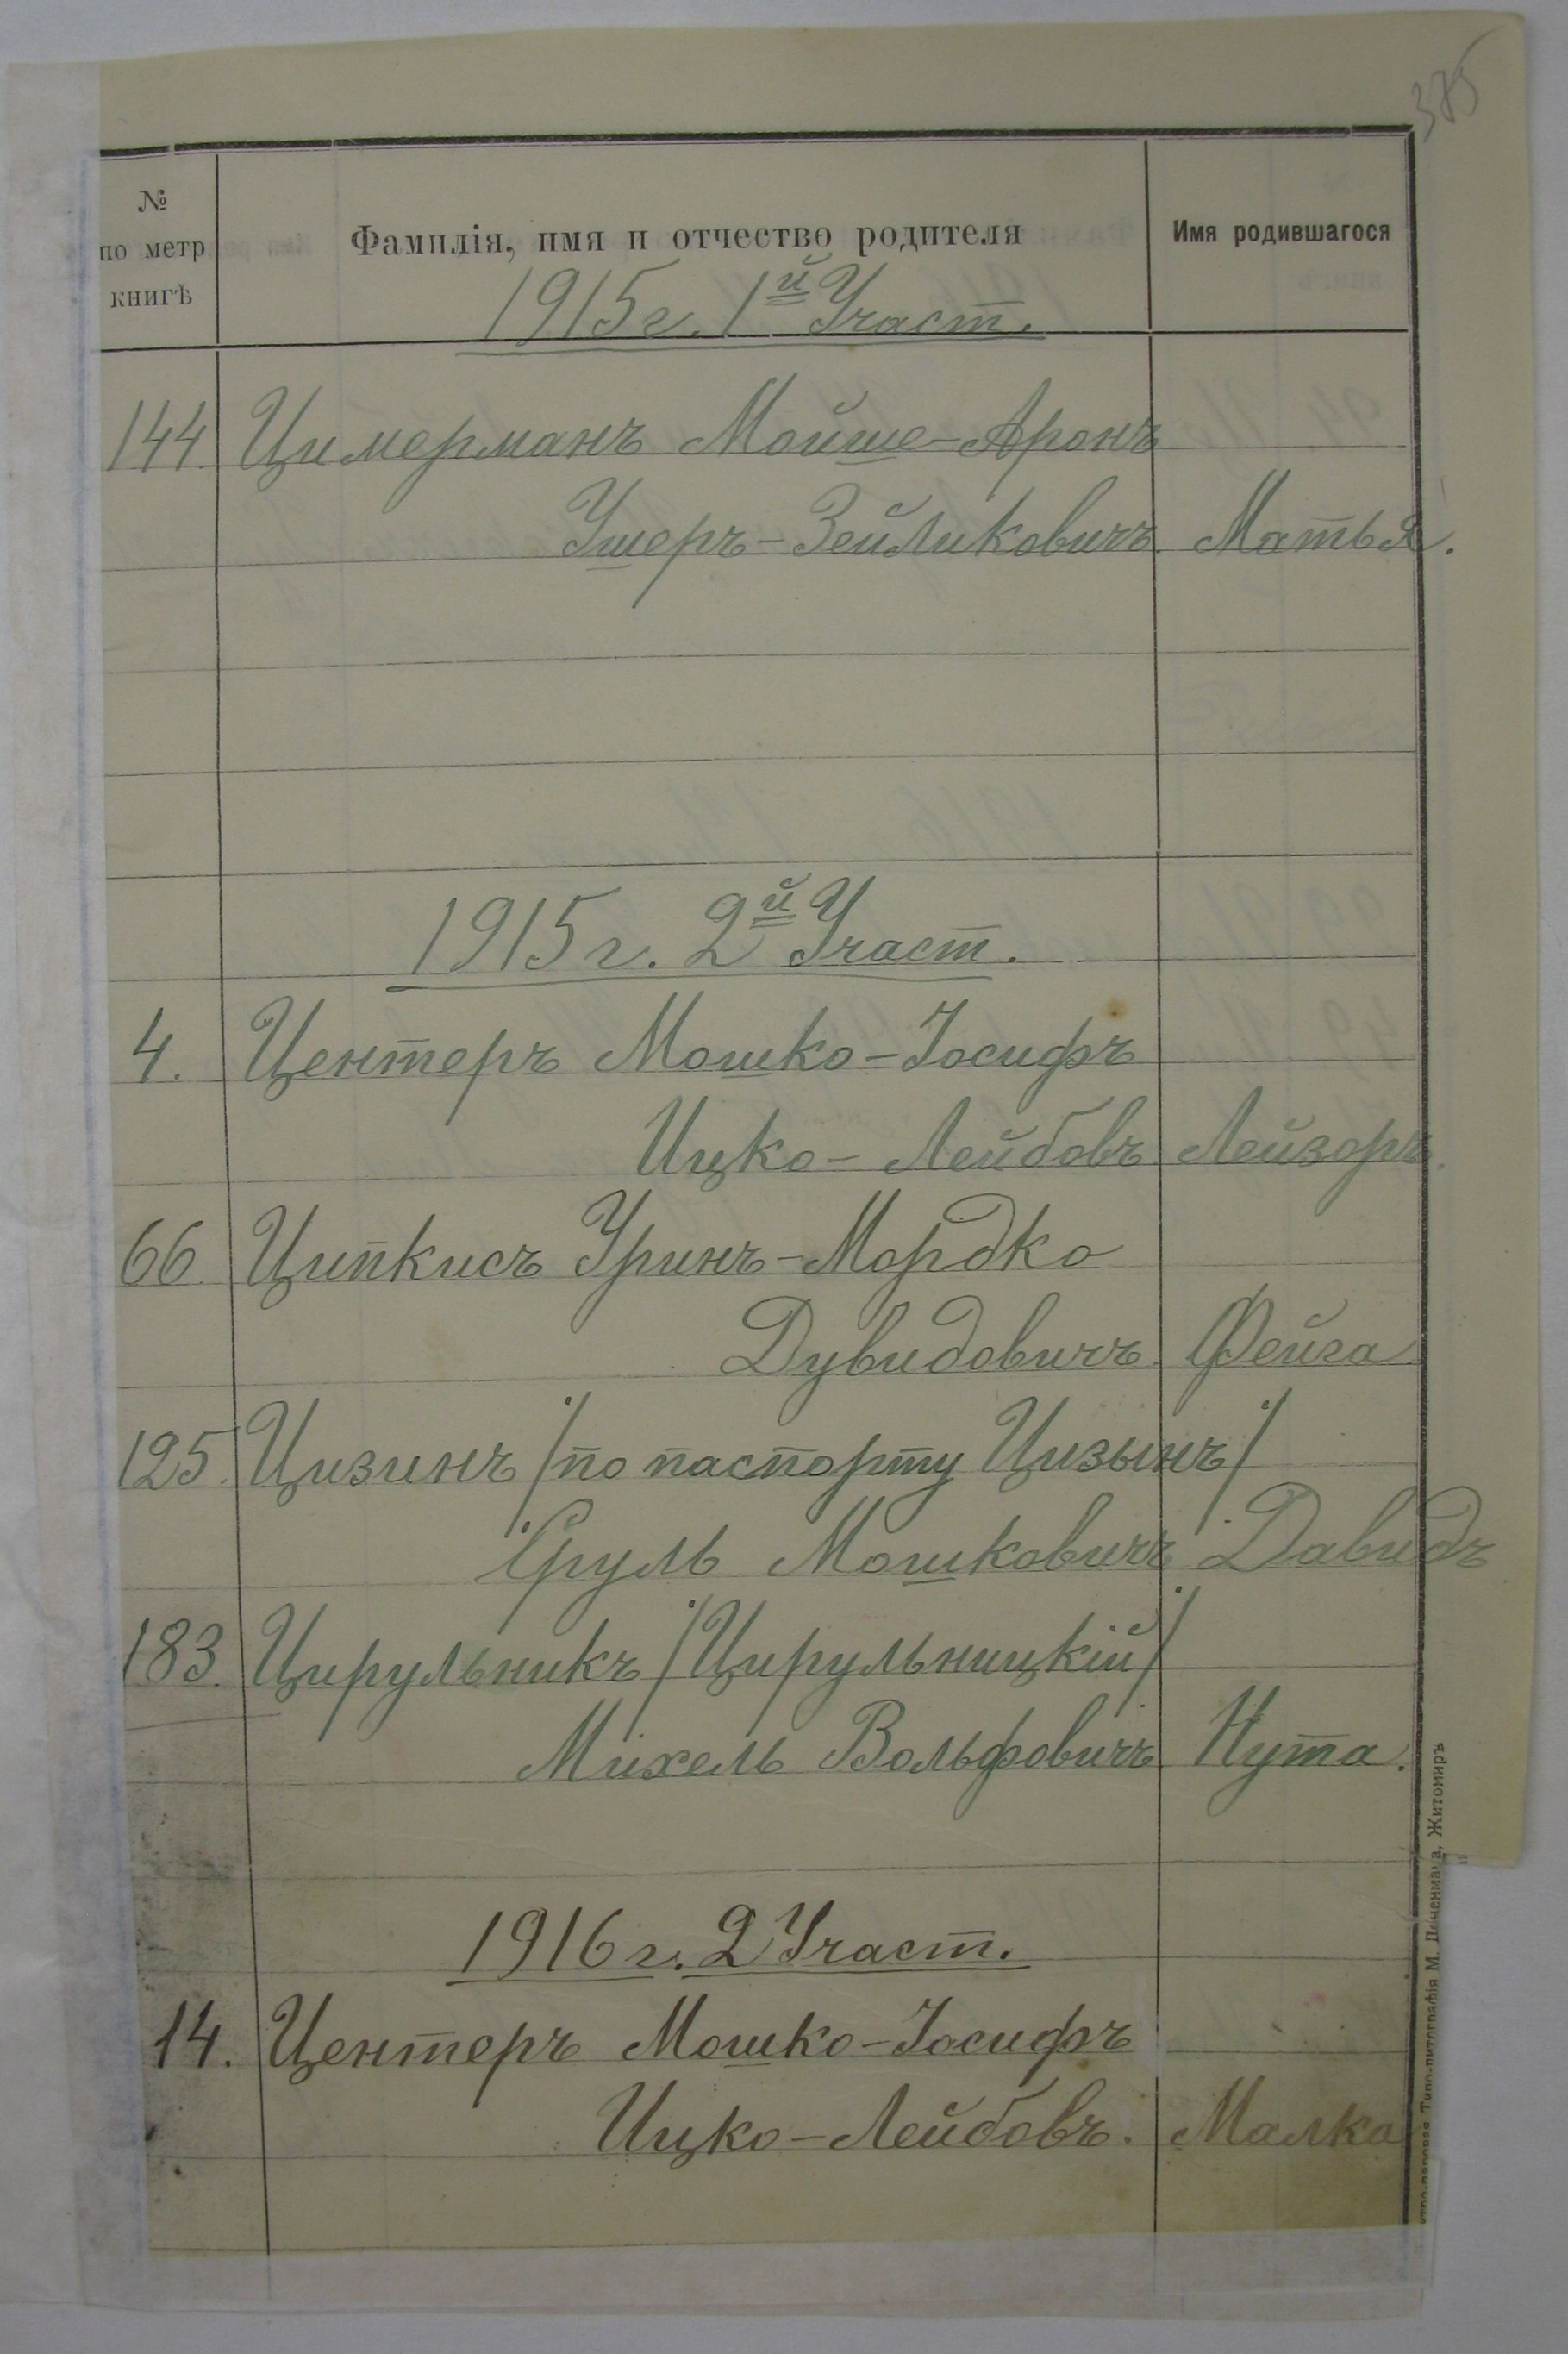 375
№
по метр
книгѣ
Фамилія, имя и отчество родителя
Имя родившагося
1915 г. 1й Участ.
144. Цимерманъ Мойше-Аронъ
Ушеръ-Зейликовичъ Матья.
1915 г. 2й Участ.
4. Центеръ Мошко-Іосифъ
Ицко-Лейбовъ Лейзоръ.
66 Ципкисъ Уринъ-Мордко
Дувидовичъ Фейга
125. Цизинъ /по паспорту Цизынъ/
Сруль Мошковичъ Давидъ
183. Цирульникъ /Цирульницкій/
Михель Вольфовичъ Нута.
1916 г. 2 Участ.
14. Центеръ Мошко-Іосифъ
Ицко-Лейбовъ. Малка
Типо-литографія М. Дененмана, Житомиръ